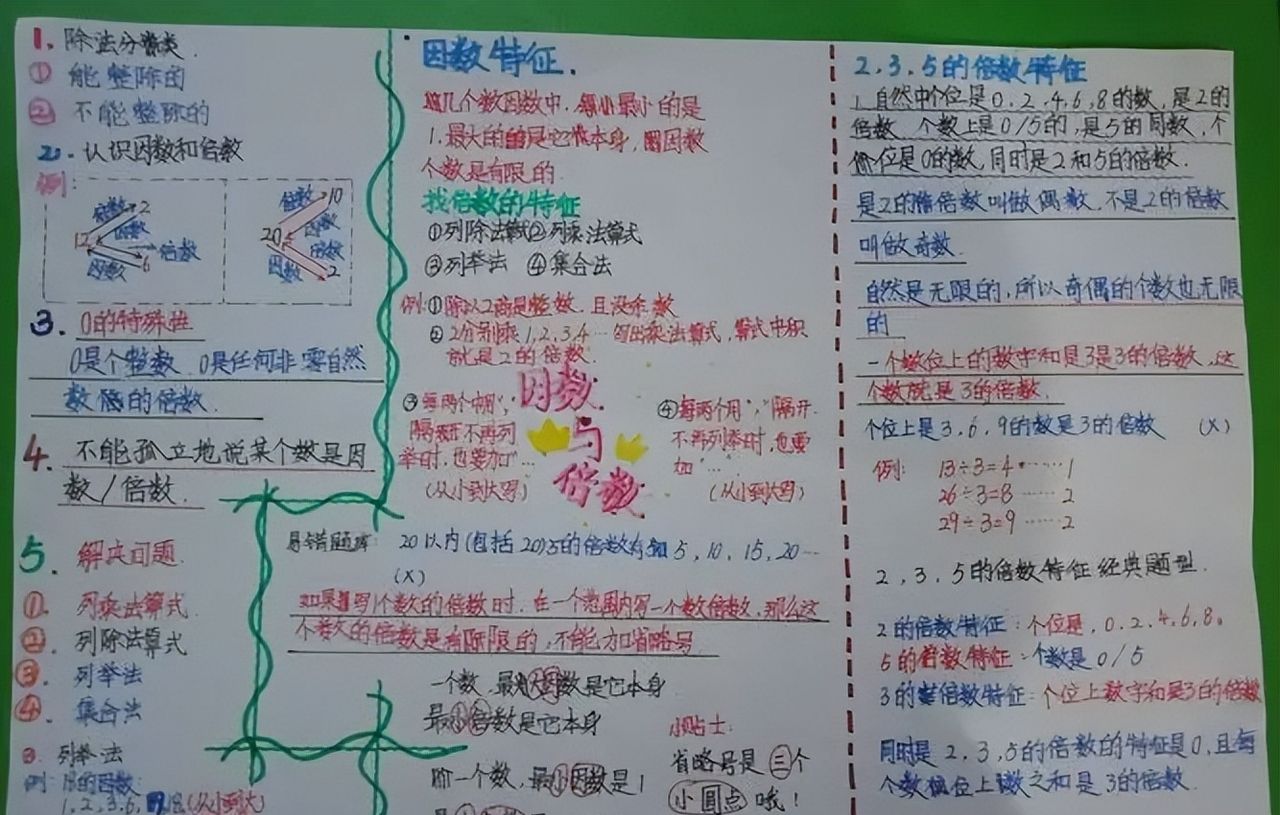 1. 除法分类
① 能整除的
② 不能整除的
2. 认识因数和倍数
例:
倍数 2
因数
12
倍数
因数 6
倍数 10
因数
20
因数
因数 2
3. 0的特殊性
0是个整数 0是任何非零自然
数 的倍数.
4. 不能孤立地说某个数是因
数/倍数.
5. 解决问题.
①. 列乘法算式
②. 列除法算式
③. 列举法
④. 集合法
3. 列举法
例: 的因数:
1,2,3,6, 18(从小到大)
因数特征.
几个数因数中, 最小的是
1.最大的 是它 本身, 因数
个数是有限的.
找倍数的特征
①列除法算式②列乘法算式
③列举法 ④集合法
例:①除以2商是整数.且没余数
②2分别乘1,2,3,4…列出乘法算式,算式中积
就是2的倍数.
③每两个中用","
隔开不再列
举时,也要加"…
(从小到大写)
因数
与
倍数
④每两个用","隔开.
不再列举时,也要
加"…"
(从小到大写)
易错题库: 20以内(包括20)5的倍数有 5, 10, 15, 20…
(X)
如果 写1个数的倍数时.在一个范围内写一个数倍数,那么这
个数的倍数是有 限的,不能加省略号
一个数,最大因数是它本身
最小倍数是它本身
一个数,最小因数是1
小贴士:
省略号是三个
小圆点哦!
2,3,5的倍数特征
1.自然中个位是0,2,4,6,8的数,是2的
倍数,个数上是0/5的,是5的 数,个
位是0的数,同时是2和5的倍数.
是2的 倍数叫做偶数.不是2的倍数
叫做奇数.
自然是无限的,所以奇偶的个数也无限
的
一个数位上的数字和是3是3的倍数.这
个数就是3的倍数.
个位上是3,6,9的数是3的倍数 (X)
例: 13÷3=4……1
26÷3=8……2
29÷3=9……2
2,3,5的倍数特征经典题型.
2的倍数特征:个位是,0.2.4.6.8。
5的倍数特征:个数是0/5
3的 倍数特征:个位上数字和是3的倍数
同时是2,3,5的倍数的特征是0,且每
个数 位上 数之和是3的倍数.